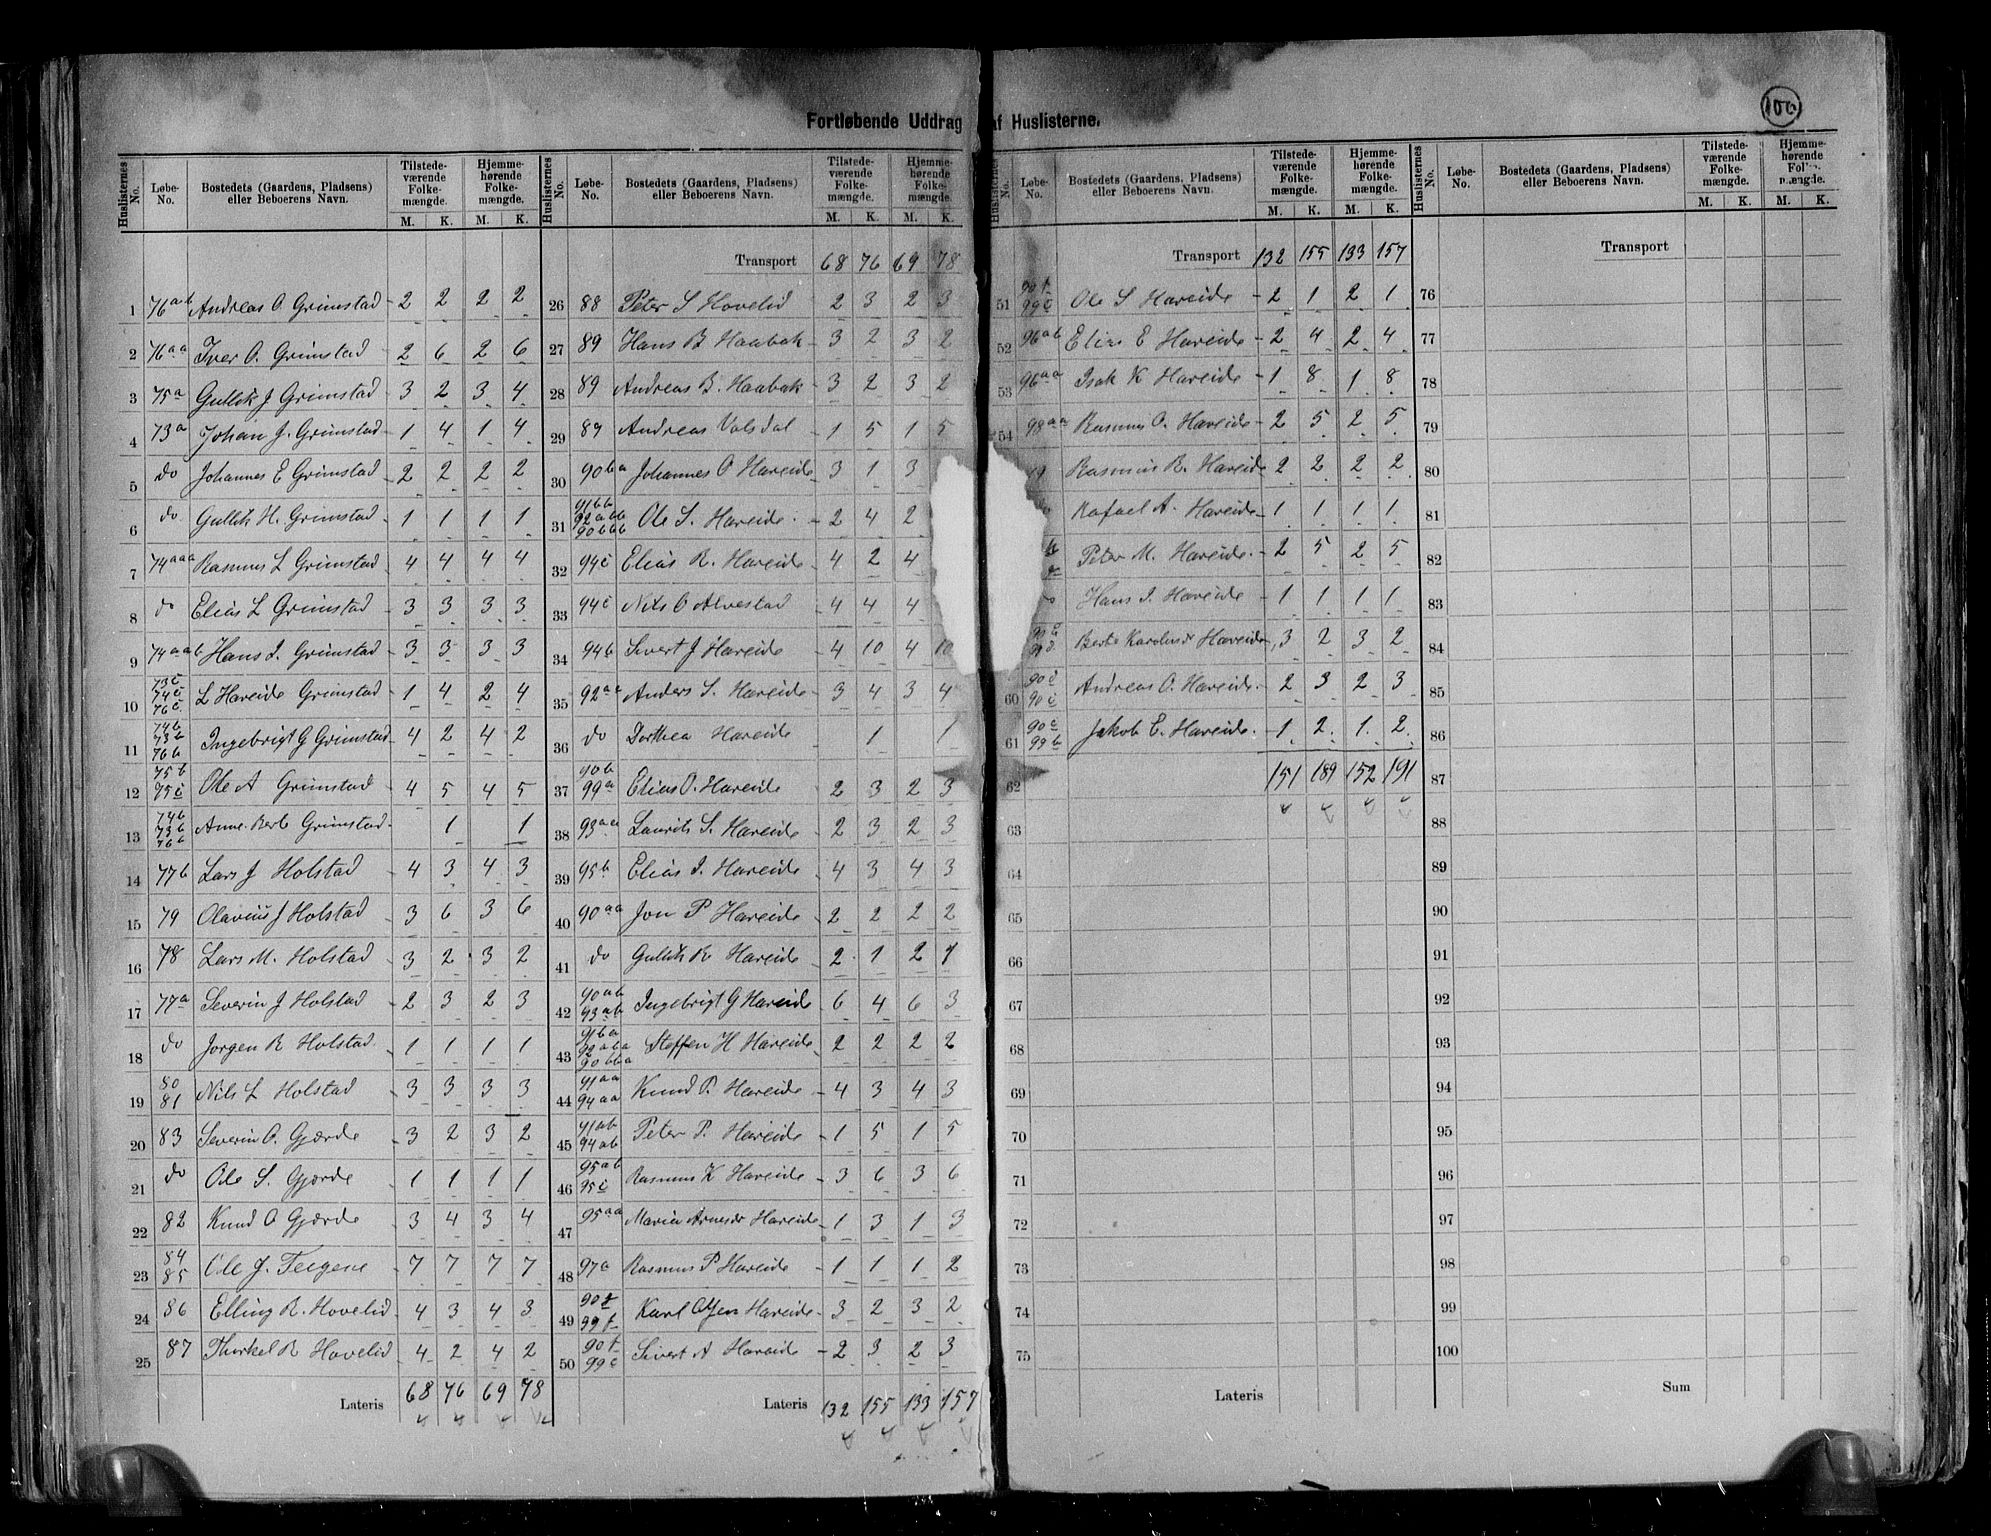 106
Fortløbende Uddrag af Huslisterne.
Huslisternes No. Løbe-No. Bostedets (Gaardens, Pladsens) eller Beboerens Navn. Tilstedeværende Folkemængde. M. K. Hjemmehørende Folkemængde. M. K.
1 76ab Andreas O Grimstad 2 2 2 2
2 76aa Iver O. Grimstad 2 6 2 6
3 75a Gullik J Grimstad 3 2 3 4
4 73a Johan J. Grimstad 1 4 1 4
5 do Johannes E Grimstad 2 2 2 2
6 do Gullik H. Grimstad 1 1 1 1
7 74aaa Rasmus L Grimstad 4 4 4 4
8 do Elias L Grimstad 3 3 3 3
9 74aab Hans I. Grimstad 3 3 3 3
10 73c 74c 76c L Hareide Grimstad 1 4 2 4
11 74b 73b 76b Ingebrigt G Grimstad 4 2 4 2
12 75b 75c Ole A Grimstad 4 5 4 5
13 74b 73b 76b Anne Berb Grimstad 1 1
14 77b Lars J Holstad 4 3 4 3
15 79 Olavius J Holstad 3 6 3 6
16 78 Lars M. Holstad 3 2 3 2
17 77a Severin J Holstad 2 3 2 3
18 do Jorgen R Holstad 1 1 1 1
19 80 81 Nils L Holstad 3 3 3 3
20 83 Severin O. Gjørde 3 2 3 2
21 do Ole S. Gjørde 1 1 1 1
22 82 Knud O Gjørde 3 4 3 4
23 84 85 Ole J. Teigene 7 7 7 7
24 86 Elling R. Hovelid 4 3 4 3
25 87 Thorkel R Hovelid 4 2 4 2
Lateris 68 76 69 78
Huslisternes No. Løbe-No. Bostedets (Gaardens, Pladsens) eller Beboerens Navn. Tilstedeværende Folkemængde. M. K. Hjemmehørende Folkemængde. M. K.
Transport 68 76 69 78
26 88 Peter S Hovelid 2 3 2 3
27 89 Hans B Haabak 3 2 3 2
28 89 Andreas B. Haabak 3 2 3 2
29 89 Andreas Valsdal 1 5 1 5
30 90ba Johannes O Hareide 3 1 3
31 91bb 92abb 90bbb Ole S. Hareide 2 4 2
32 94c Elias R. Hareide 4 2 4
33 94c Nils O Alvestad 4 4 4
34 94b Sivert J Hareide 4 10 4 10
35 92aa Anders S. Hareide 3 4 3 4
36 do Dorthea Hareide 1 1
37 90b 99a Elias O. Hareide 2 3 2 3
38 93aa Laurits S. Hareide 2 3 2 3
39 95b Elias I. Hareide 4 3 4 3
40 90aa Jon P Hareide 2 2 2 2
41 do Gullik R Hareide 2 1 2 1
42 90ab 93ab Ingebrigt G Hareide 6 4 6 3
43 91ba 92aba 90bba Steffen H Hareide 2 2 2 2
44 91aa 94aa Knud P. Hareide 4 3 4 3
45 91ab 94ab Peter P. Hareide 1 5 1 5
46 95ab 95c Rasmus K Hareide 3 6 3 6
47 95aa Maria Arnesdr Hareide 1 3 1 3
48 97a Rasmus P Hareide 1 1 1 2
49 90f 99f Karl Olsen Hareide 3 2 3 2
50 90f 99c Sivert A Hareide 2 3 2 3
Lateris 132 155 133 157
Huslisternes No. Løbe-No. Bostedets (Gaardens, Pladsens) eller Beboerens Navn. Tilstedeværende Folkemængde. M. K. Hjemmehørende Folkemængde. M. K.
Transport 132 155 133 157
51 90f 99c Ole S Hareide 2 1 2 1
52 96ab Elias E Hareide 2 4 2 4
53 96aa Isak K Hareide 1 8 1 8
54 98aa Rasmus O. Hareide 2 5 2 5
Rasmus R. Hareide 2 2 2 2
Rafael A. Hareide 1 1 1 1
Peter M. Hareide 2 5 2 5
Hans I. Hareide 1 1 1 1
Berte Karolusdr Hareide 3 2 3 2
60 90c 90c Andreas O. Hareide 2 3 2 3
61 90c 99b Jakob E. Hareide 1 2 1 2
62 151 189 152 191
63
64
65
66
67
68
69
70
71
72
73
74
75
Lateris
Huslisternes No. Løbe-No. Bostedets (Gaardens, Pladsens) eller Beboerens Navn. Tilstedeværende Folkemængde. M. K. Hjemmehørende Folkemængde. M. K.
Transport
76
77
78
79
80
81
82
83
84
85
86
87
88
89
90
91
92
93
94
95
96
97
98
99
100
Sum